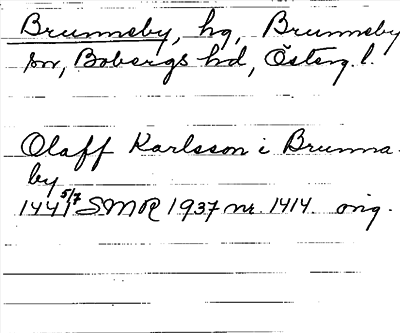 Brunnsby, hg, Brunnsby
sn, Bobergs hd, Österg. l.
Olaff Karlsson i Brunna-
by
1441 5/7 SMR 1937 nr. 1414 orig.